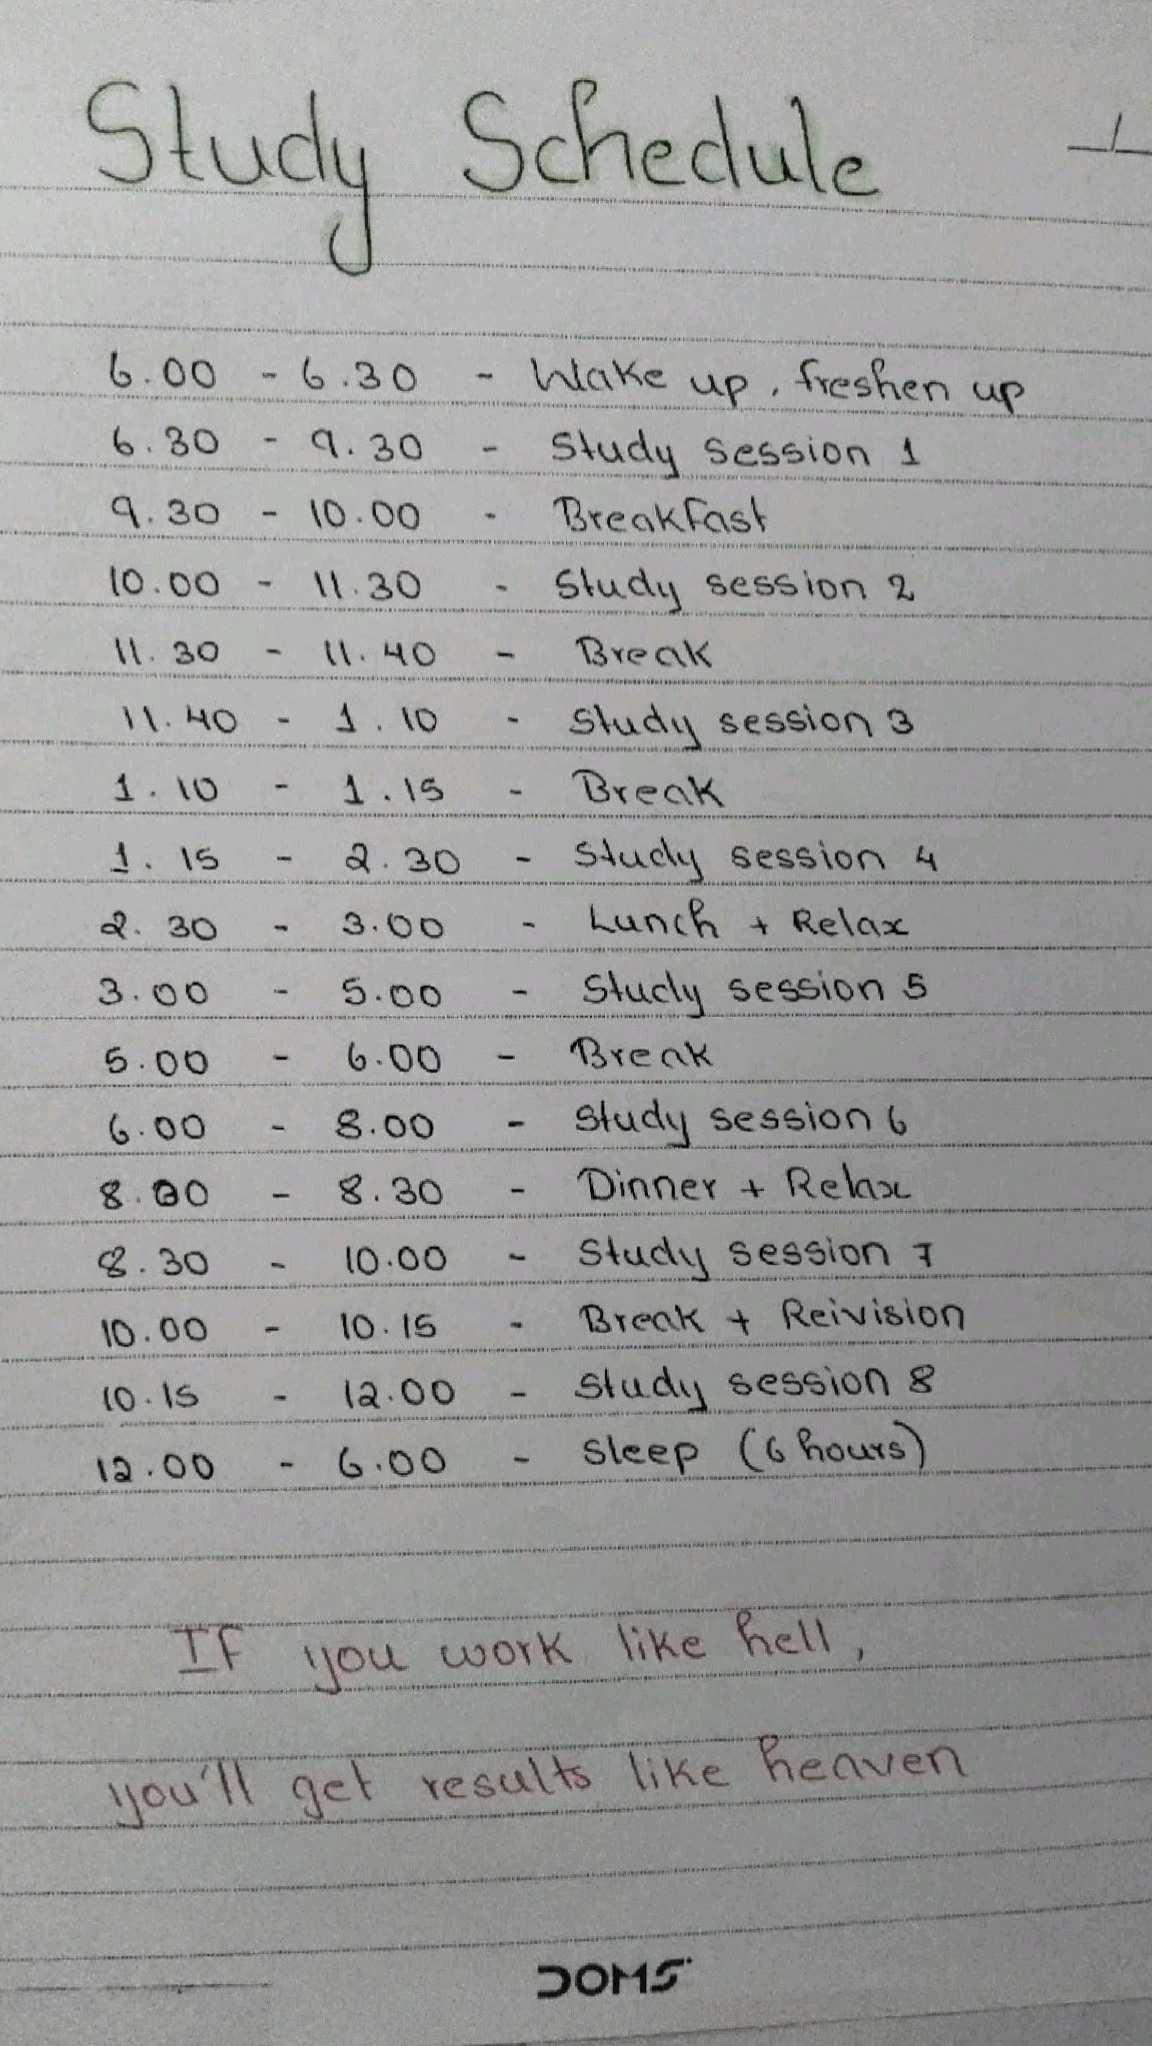 Study Schedule
6.00 - 6.30 - Wake up, freshen up
6.30 - 9.30 - Study session 1
9.30 - 10.00 - Breakfast
10.00 - 11.30 - Study session 2
11.30 - 11.40 - Break
11.40 - 1.10 - Study session 3
1.10 - 1.15 - Break
1.15 - 2.30 - Study session 4
2.30 - 3.00 - Lunch + Relax
3.00 - 5.00 - Study session 5
5.00 - 6.00 - Break
6.00 - 8.00 - Study session 6
8.00 - 8.30 - Dinner + Relax
8.30 - 10.00 - Study session 7
10.00 - 10.15 - Break + Reivision
10.15 - 12.00 - Study session 8
12.00 - 6.00 - Sleep (6 hours)
If you work like hell,
you'll get results like heaven
DOMS